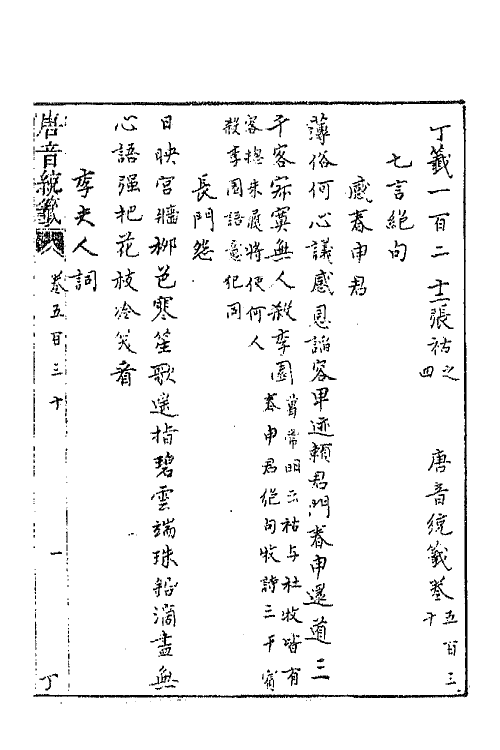 丁籤一百二十二 張祜之四 唐音統籤卷五百三十
七言絕句
感春申君
薄俗何心議感恩諂容卑迹賴君門春申還道三
千客寂寞無人殺李園
曾常明云祜与杜牧皆有
春申君絕句牧詩三千賓
客捴朱履將使何人
殺李園語意犯同
長門怨
日映宮牆柳色寒笙歌遙指碧雲端珠鉛滴盡無
心語强把花枝冷笑看
李夫人詞
唐音統籤 卷五百三十 一 丁